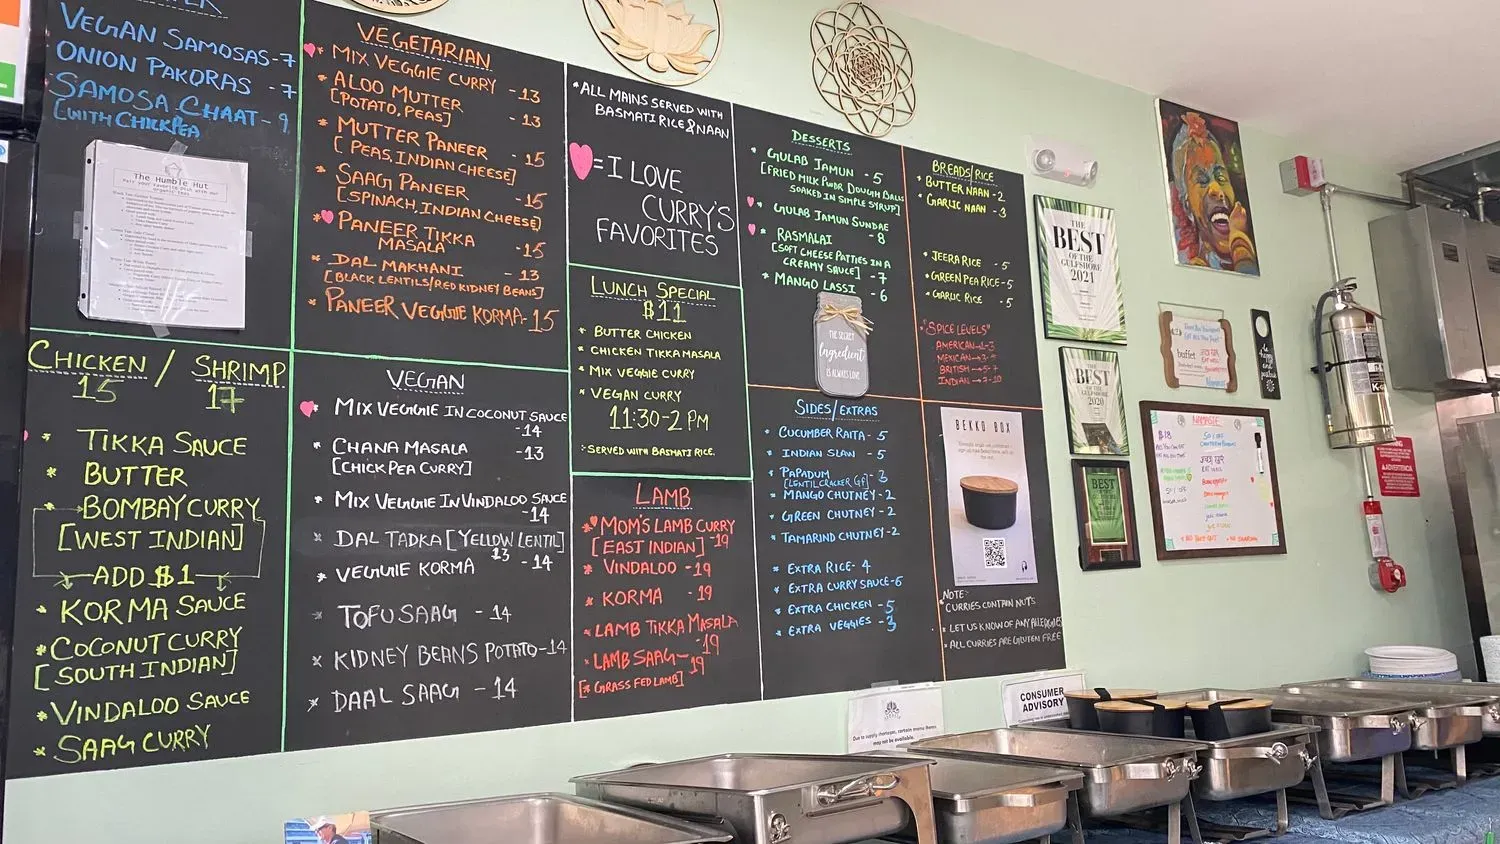 VEGAN SAMOSAS-7
ONION PAKORAS -7
SAMOSA CHAAT-9
[WITH CHICKPEA
The Humble Hut
CHICKEN / SHRIMP
15 17
* TIKKA SAUCE
* BUTTER
* BOMBAY CURRY
[WEST INDIAN]
ADD $1
* KORMA SAUCE
* COCONUT CURRY
[SOUTH INDIAN]
* VINDALOO SAUCE
* SAAG CURRY
VEGETARIAN
* MIX VEGGIE CURRY -13
* ALOO MUTTER
[POTATO, PEAS] -13
* MUTTER PANEER -15
[PEAS, INDIAN CHEESE]
* SAAG PANEER -15
[SPINACH, INDIAN CHEESE]
* PANEER TIKKA
MASALA -15
* DAL MAKHANI -13
[BLACK LENTILS/RED KIDNEY BEANS]
* PANEER VEGGIE KORMA-15
VEGAN
* MIX VEGGIE IN COCONUT SAUCE
-14
* CHANA MASALA -13
[CHICKPEA CURRY]
* MIX VEGGIE IN VINDALOO SAUCE
-14
* DAL TADKA [YELLOW LENTIL]
13
* VEGGIE KORMA -14
* TOFU SAAG -14
* KIDNEY BEANS POTATO-14
* DAAL SAAG -14
*ALL MAINS SERVED WITH
BASMATI RICE & NAAN
=I LOVE
CURRY'S
FAVORITES
LUNCH SPECIAL
$11
* BUTTER CHICKEN
* CHICKEN TIKKA MASALA
* MIX VEGGIE CURRY
* VEGAN CURRY
11:30-2 PM
*SERVED WITH BASMATI RICE.
LAMB
* MOM'S LAMB CURRY
[EAST INDIAN] -19
* VINDALOO -19
* KORMA -19
* LAMB TIKKA MASALA
-19
* LAMB SAAG-19
[* GRASS FED LAMB]
DESSERTS
* GULAB JAMUN -5
[FRIED MILK PWDR DOUGH BALLS
SOAKED IN SIMPLE SYRUP]
* GULAB JAMUN SUNDAE
-8
* RASMALAI
[SOFT CHEESE PATTIES IN A
CREAMY SAUCE] -7
* MANGO LASSI -6
THE SECRET
Ingredient
IS ALWAYS LOVE
SIDES/EXTRAS
* CUCUMBER RAITA- 5
* INDIAN SLAW -5
* PAPADUM
[LENTIL CRACKER GF] -3
* MANGO CHUTNEY-2
* GREEN CHUTNEY-2
* TAMARIND CHUTNEY-2
* EXTRA RICE- 4
* EXTRA CURRY SAUCE-6
* EXTRA CHICKEN -5
* EXTRA VEGGIES -3
BREADS/RICE
* BUTTER NAAN -2
* GARLIC NAAN -3
* JEERA RICE -5
* GREEN PEA RICE-5
* GARLIC RICE -5
*"SPICE LEVELS"
AMERICAN→1-3
MEXICAN→3-5
BRITISH→5-7
INDIAN→7-10
BEKKO BOX
NOTE:-
* CURRIES CONTAIN NUTS
* LET US KNOW OF ANY ALLERGIES
* ALL CURRIES ARE GLUTEN FREE
THE
BEST
OF THE GULFSHORE
2021
THE
BEST
OF THE GULFSHORE
2020
BEST
buffet
NAMASTE
$18
50% OFF
ADVERTENCIA
Due to supply shortages, certain menu items
may not be available.
CONSUMER
ADVISORY